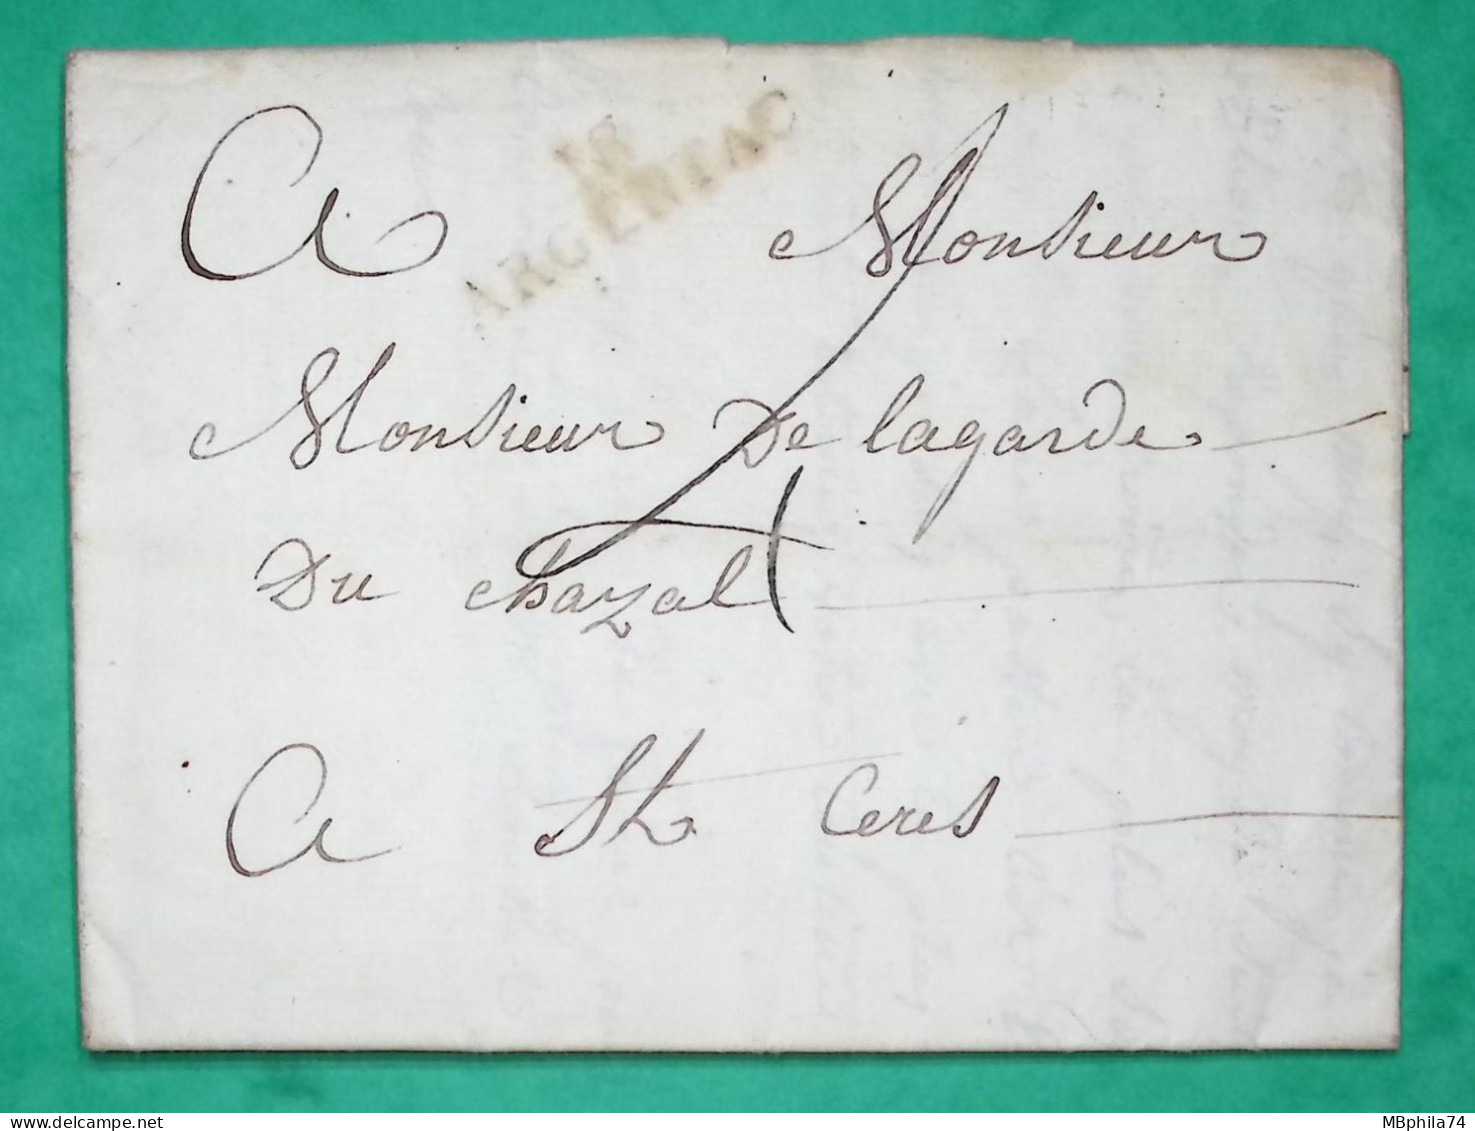 18
ARGENTAC
A Monsieur
Monsieur De lagarde
Du chazal
A St Ceres
4
delcampe.net
MBphila74